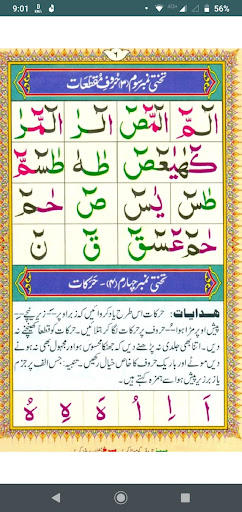 9:01
56%
۲
تختی نمبر سوم (۳) حروفِ مُقطّعات
الٓمّٓ الٓمّٓصٓ الٓرٰ الٓمّٓرٰ
كٓهٰيٰعٓصٓ طٰهٰ طٰسٓمّٓ
طٰسٓ يٰسٓ صٓ حٰمٓ
حٰمٓ عٓسٓقٓ قٓ نٓ
تختی نمبر چہارم (۴)۔ حرکات
ہدایات: حرکات اس طرح یاد کروائیں کہ زبر اوپر، زیر نیچے،
پیش اوپر مڑا ہوا حروف پر حرکات لگا کر بتلائیں۔ حرکات کو قطعاً کھینچنے نہ
دیں۔ اتنا بھی جلدی نہ پڑھنے دیں کہ جھٹکا محسوس ہو اور مجہول بھی نہ ہونے
دیں۔ موٹے اور باریک حروف کا خاص خیال رکھیں۔ تنبیہ: جس الف پر جزم
یا زبر زیر پیش ہو اسے ہمزہ کہتے ہیں۔
اَ اِ اُ هَ هِ هُ